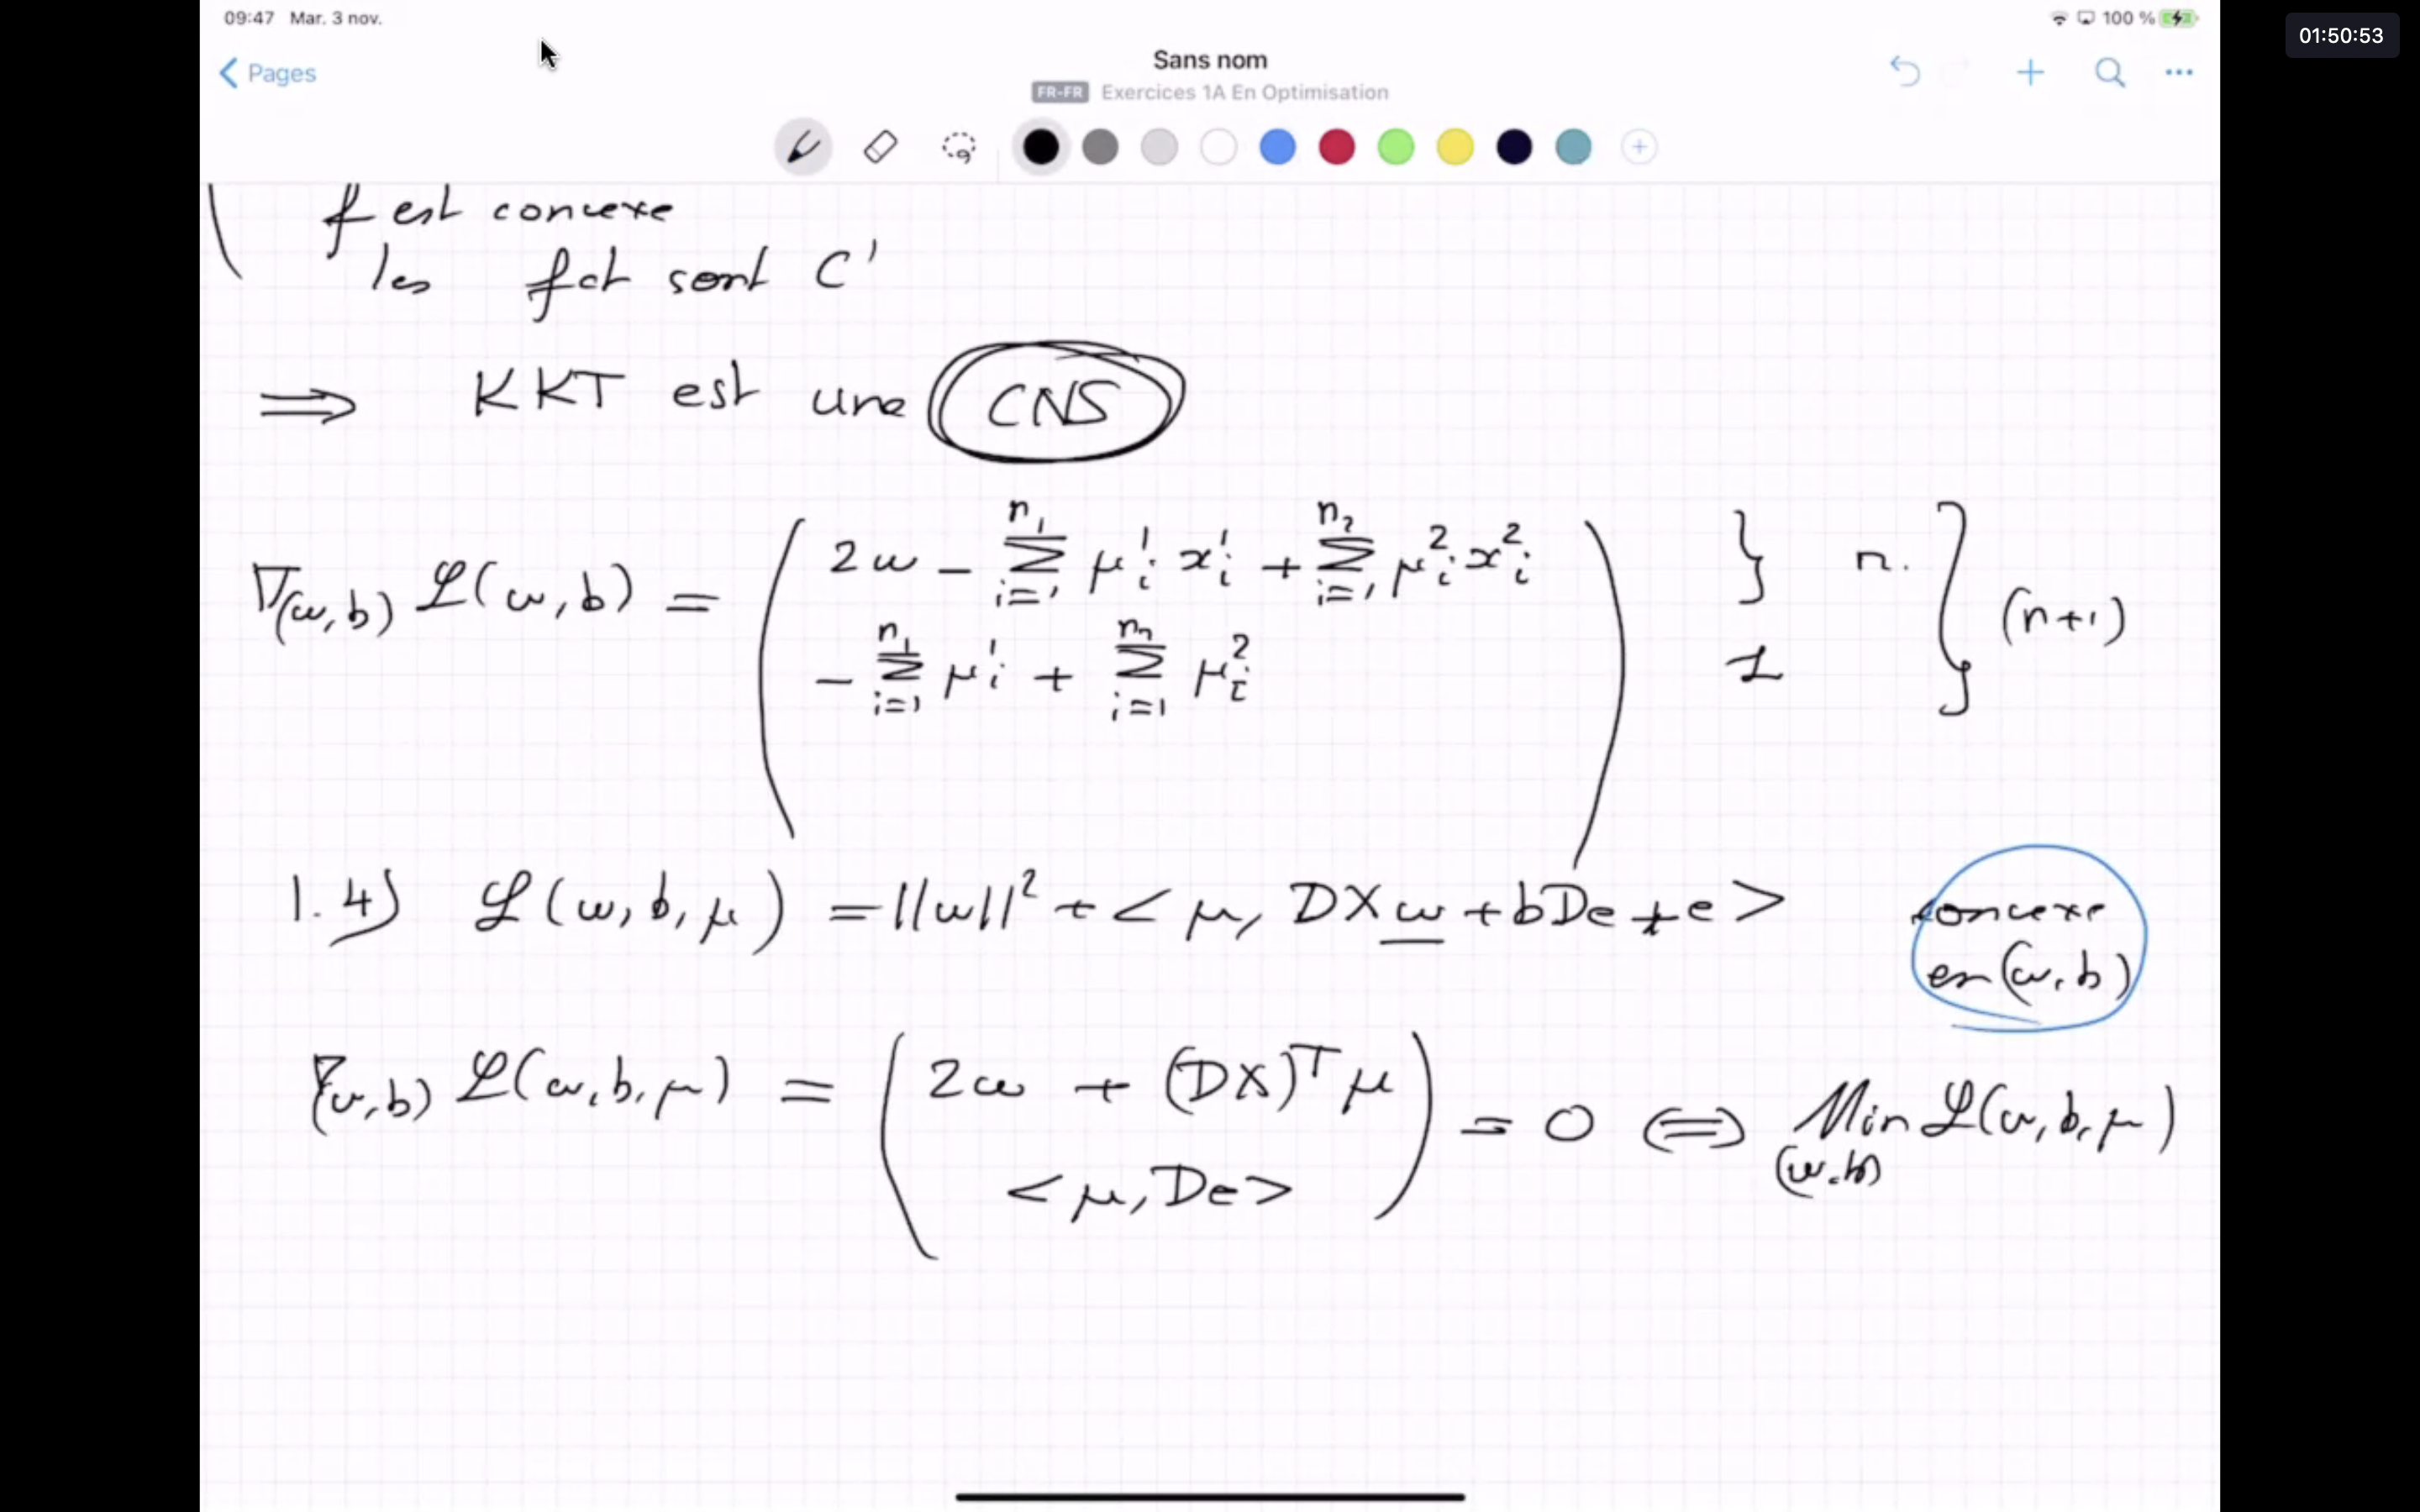 09:47 Mar. 3 nov.
100 %
01:50:53
Pages
Sans nom
FR-FR Exercices 1A En Optimisation
f est convexe
les fct sont C¹
⟹ KKT est une CNS
∇(w,b) ℒ(w,b) = ( 2w − Σ_{i=1}^{n₁} μ¹ᵢ x¹ᵢ + Σ_{i=1}^{n₂} μ²ᵢ x²ᵢ ) } n.
− Σ_{i=1}^{n₁} μ¹ᵢ + Σ_{i=1}^{n₂} μ²ᵢ 1 } (n+1)
1.4) ℒ(w,b,μ) = ||w||² + <μ, DXw + bDe + e> convexe
en (w,b)
∇(w,b) ℒ(w,b,μ) = ( 2w + (DX)ᵀμ ) = 0 ⟺ Min ℒ(w,b,μ)
<μ,De> (w,b)